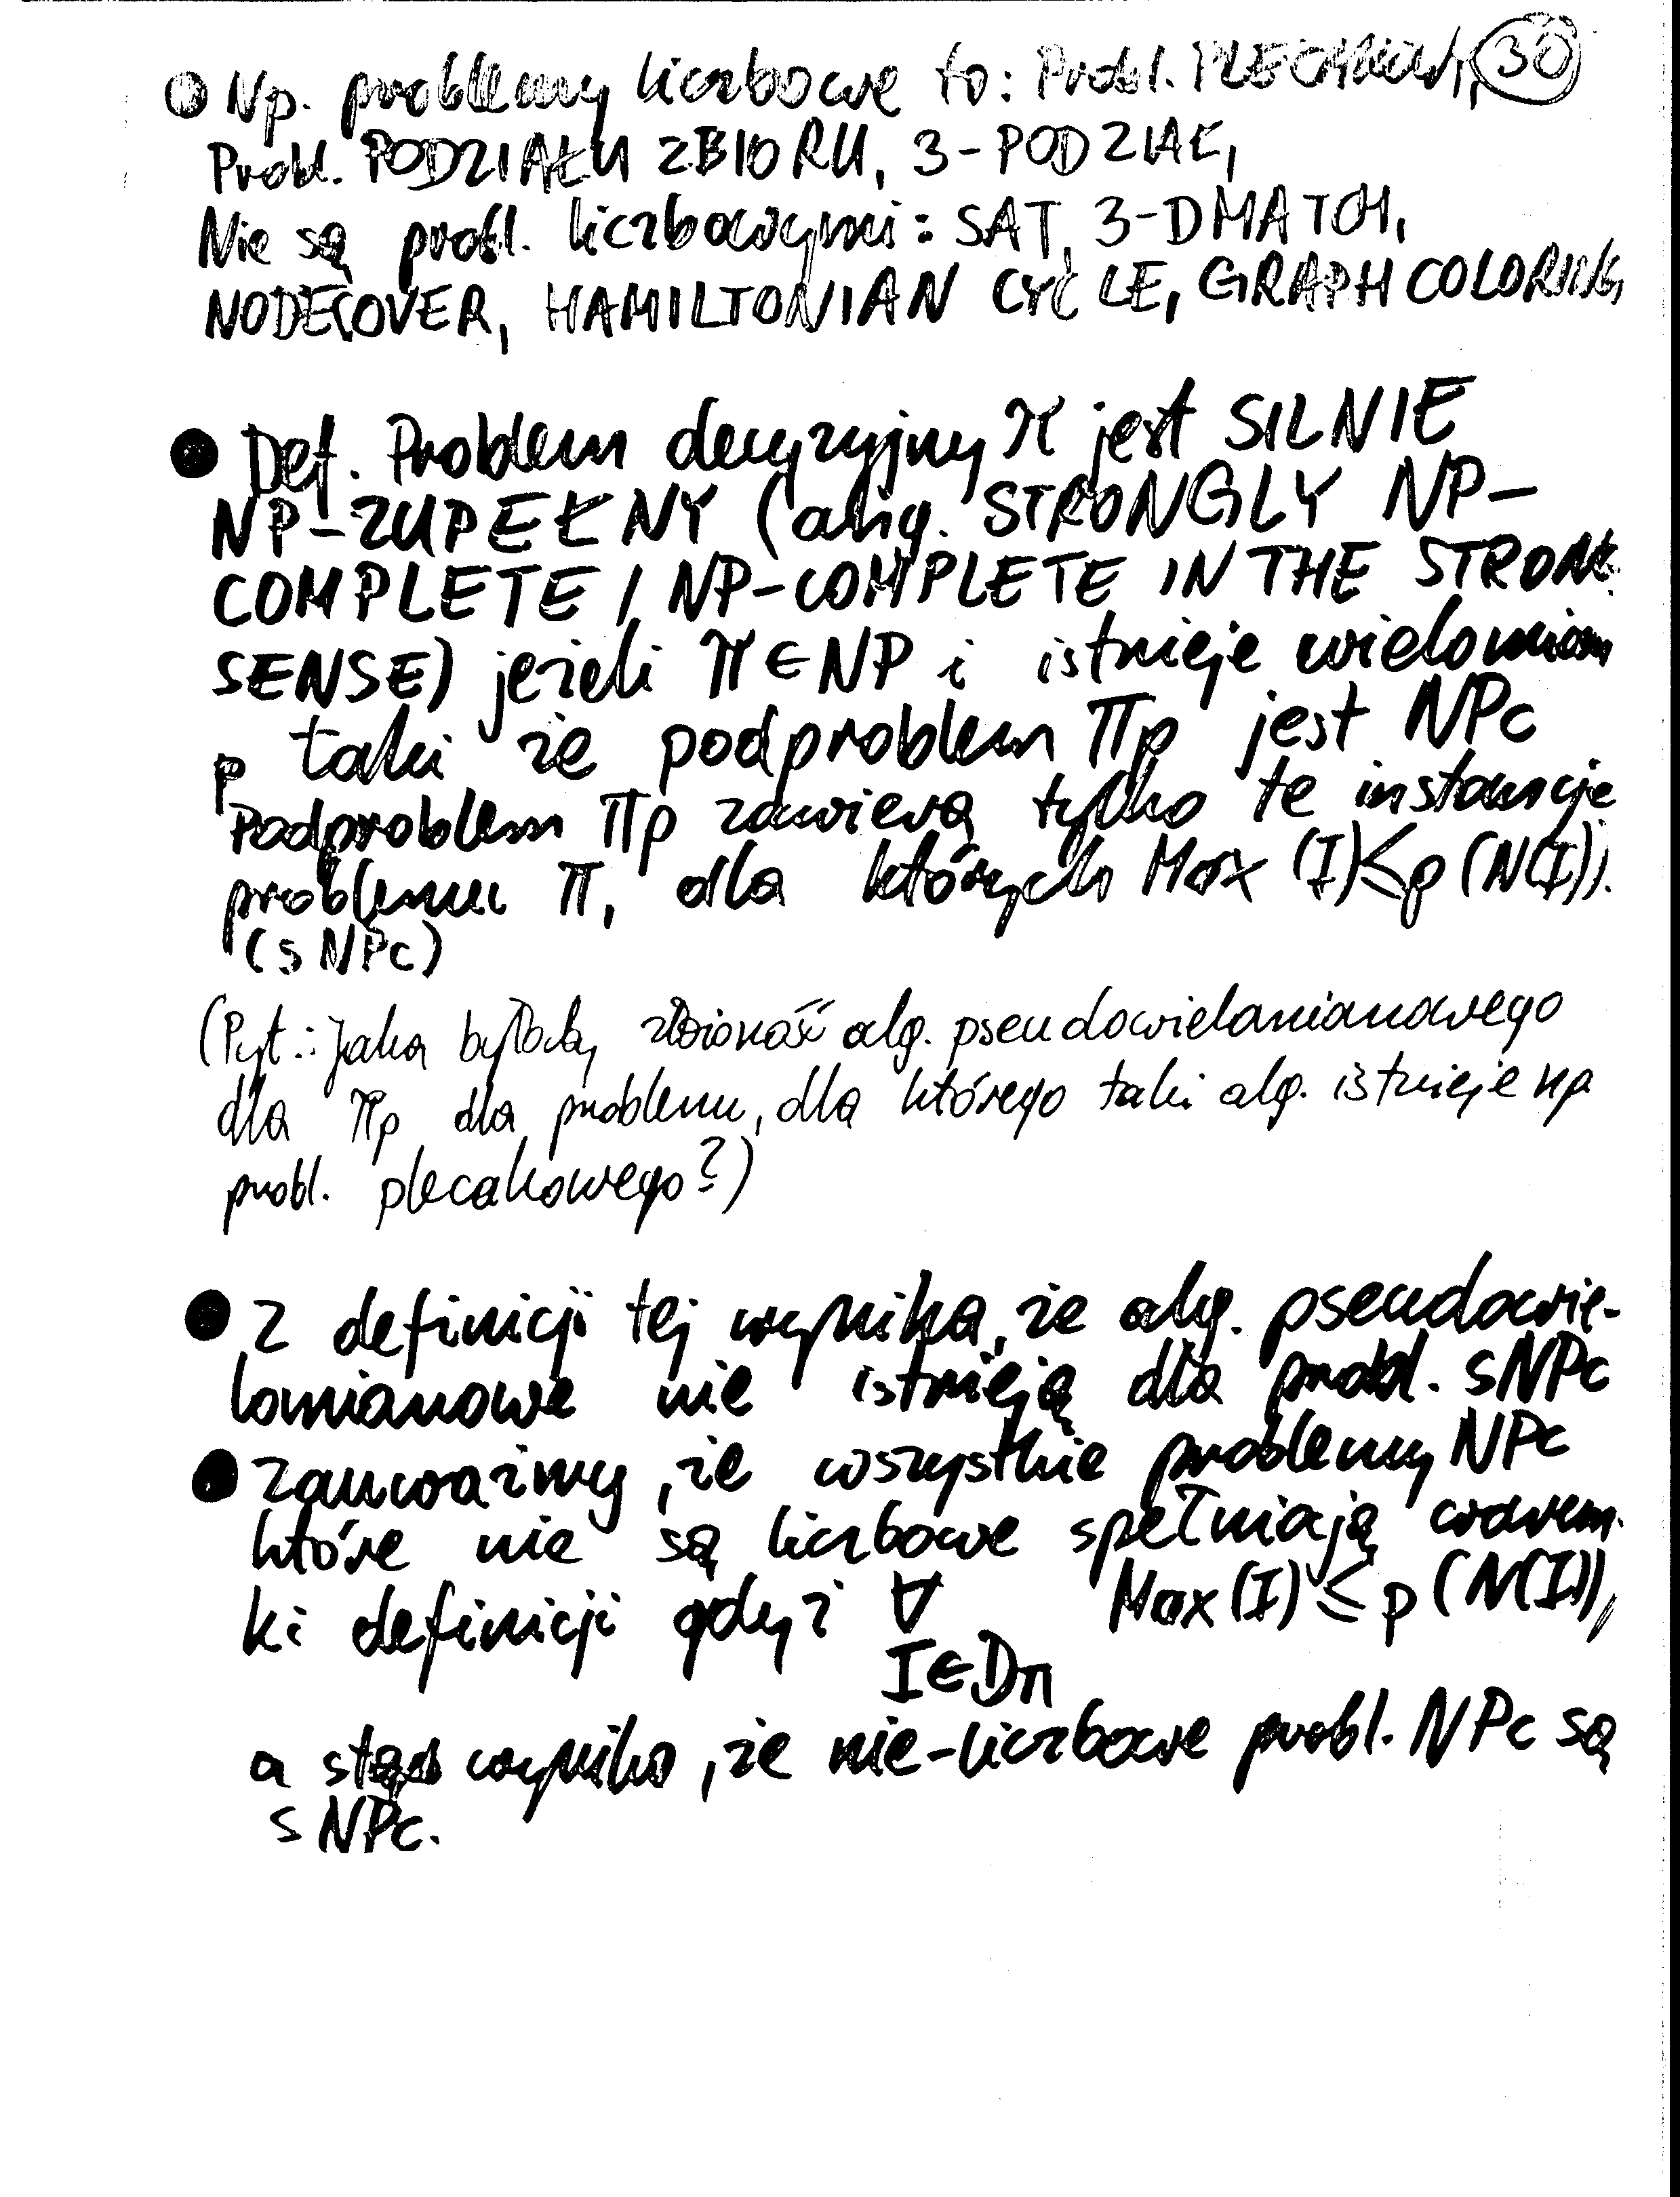 • Np. problemy liczbowe to: Probl. PLECAKOWY, 30
Probl. PODZIAŁU ZBIORU, 3-PODZIAŁ,
Nie są probl. liczbowymi: SAT, 3-DMATCH,
NODECOVER, HAMILTONIAN CYCLE, GRAPH COLORING,
• Def. Problem decyzyjny π jest SILNIE
NP-ZUPEŁNY (ang. STRONGLY NP-
COMPLETE / NP-COMPLETE IN THE STRONG
SENSE) jeżeli π∈NP i istnieje wielomian
p taki że podproblem πp jest NPc
Podproblem πp zawierą tylko te instancje
problemu π, dla których Max (I)≤p (N(I)).
(sNPc)
(Pyt.: Jaka byłaby złożoność alg. pseudowielomianowego
dla πp dla problemu, dla którego taki alg. istnieje np
probl. plecakowego?)
• Z definicji tej wynika, że alg. pseudowie-
lomianowe nie istnieją dla probl. sNPc
• Zauważmy, że wszystkie problemy NPc
które nie są liczbowe spełniają warun-
ki definicji gdyż ∀ Max (I) ≤ p (N(I)),
I∈Dπ
a stąd wynika, że nie-liczbowe probl. NPc są
sNPc.